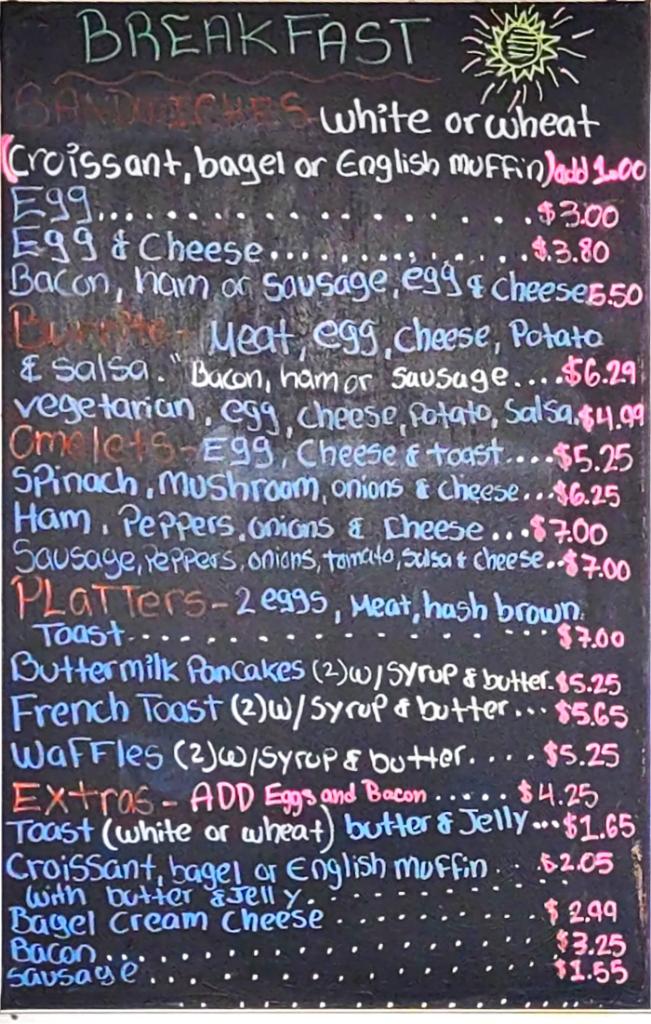 BREAKFAST
SANDWICHES white or wheat
(Croissant, bagel or English muffin) add 1.00
Egg.....................$3.00
Egg & Cheese..............$3.80
Bacon, ham or sausage, egg & cheese 5.50
Burrito - Meat, egg, cheese, Potato
& salsa. "Bacon, ham or sausage....$6.29
vegetarian, egg, cheese, Potato, Salsa.$4.99
Omelets - Egg, Cheese & toast....$5.25
Spinach, Mushroom, onions & cheese...$6.25
Ham, Peppers, onions & Cheese...$7.00
Sausage, Peppers, onions, tomato, salsa & cheese..$7.00
PLATTERS - 2 eggs, Meat, hash brown,
Toast.................$7.00
Buttermilk Pancakes (2) w/ Syrup & butter.$5.25
French Toast (2) w/ Syrup & butter...$5.65
Waffles (2) w/ Syrup & butter.....$5.25
Extras - ADD Eggs and Bacon.....$4.25
Toast (white or wheat) butter & Jelly...$1.65
Croissant, bagel or English muffin...$2.05
with butter & Jelly..............
Bagel Cream Cheese..........$2.99
Bacon.....................$3.25
Sausage...................$1.55